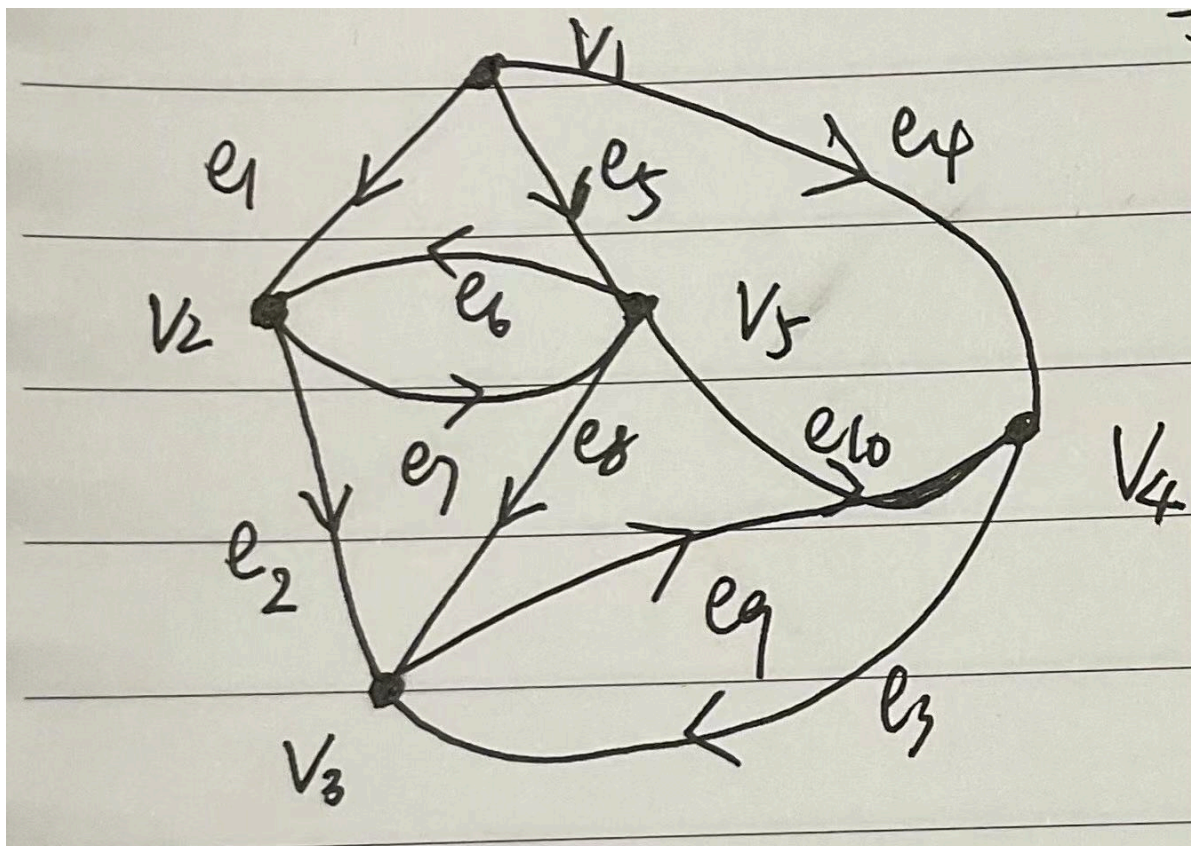 V1
e4
e1
e5
e6
V2
V5
e7
e8
e10
V4
e2
e9
e3
V3